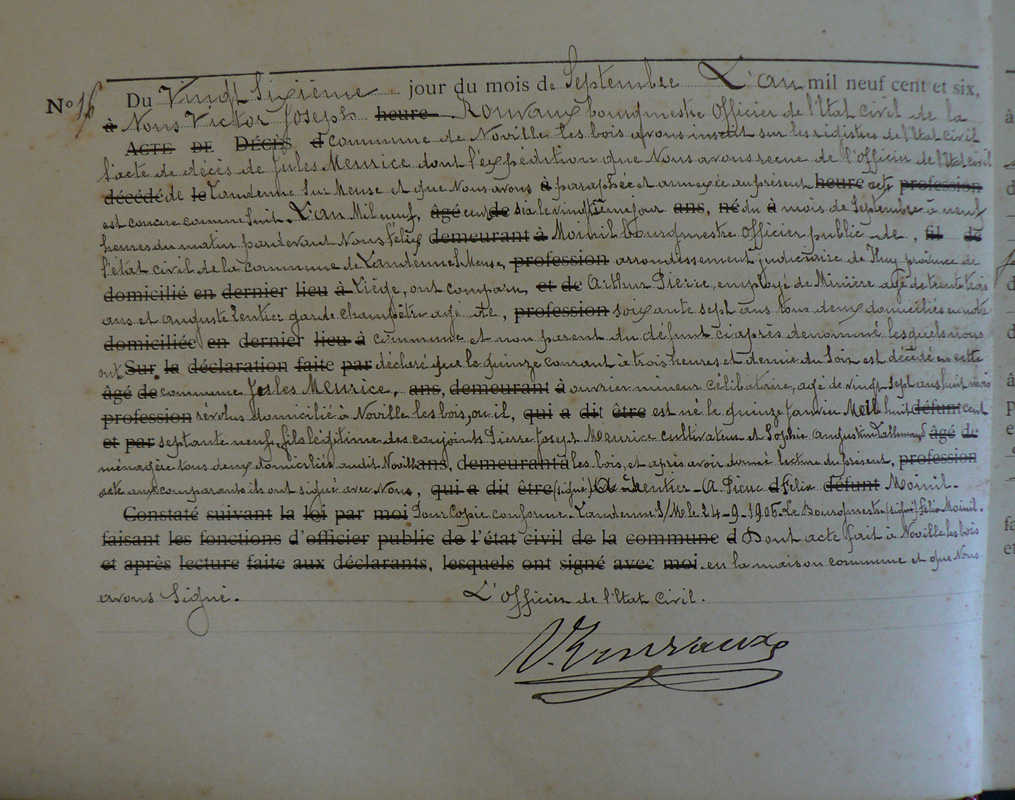 No 16 Du Vingt Sixième jour du mois de Septembre L'an mil neuf cent et six,
à Nous Victor Joseph heure Rouvaux bourgmestre Officier de l'Etat Civil de la
ACTE DE DÉCÈS d commune de Noville les bois avons inscrit sur les registres de l'Etat Civil
l'acte de décès de Jules Meurice dont l'expédition que Nous avons recue de l'Officier de l'Etat Civil
décédé de le Landenne Sur Meuse et que Nous avons à paraphée et annexée au présent heure acte profession
est concue comme suit. L'an Mil neuf, âgé cent de six le vingt jour ans, né du à mois de Septembre à neuf
heures du matin pardevant Nous Félix demeurant à Moinil bourgmestre Officier public de , fil de
l'état civil de la commune de Landenne S/Meuse, profession arrondissement judiciaire de Huy province de
domicilié en dernier lieu à Liège, ont comparu, et de Arthur Pierre, employé de Minière agé de trente trois
ans et Auguste Rentier garde champêtre agé de , profession soixante sept ans tous deux domiciliés en notre
domiciliée en dernier lieu à commune et non parent du défunt ciaprès denommé lesquels nous
ont Sur la déclaration faite par déclaré que le quinze courant à trois heures et demie du Soir est décédé en cette
âgé de commune Jules Meurice, ans, demeurant à ouvrier mineur célibataire, agé de vingt Sept ans huit mois
profession revolus domicilié à Noville les bois, où il, qui a dit être est né le quinze Janvier Mil huit défunt cent
et par septante neuf, fils légitime des conjoints Pierre Joseph Meurice cultivateur et Sophie Augustine âgé de
ménagère tous deux domiciliés audit Noville ans, demeurant à les bois, et après avoir donné lecture du présent, profession
acte aux comparants ils ont signé avec Nous, qui a dit être (signé) Rentier - A. Pierre d Félix défunt Moinil.
Constaté suivant la loi par moi Pour Copie conforme. Landenne S/M le 24-9-1906. Le Bourgmestre (signé) Félix Moinil.
faisant les fonctions d'officier public de l'état civil de la commune d Dont acte fait à Noville les bois
et après lecture faite aux déclarants, lesquels ont signé avec moi. en la maison commune et que Nous
avons Signé. L'Officier de l'Etat Civil.
V. Rouvaux